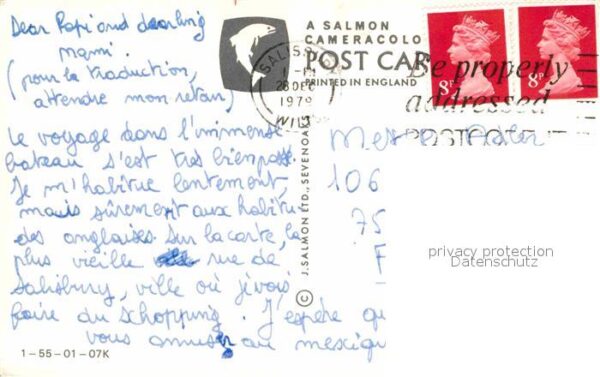 Dear Papi and dearling
mami.
(pour la traduction,
attendre mon retour)
Le voyage dans l'immense
bateau s'est très bien passé
Je m'habitue lentement,
mais sûrement aux habitu
des anglaises. Sur la carte, la
plus vieille rue de
Salisbury, ville où j'vois
faire du schopping. J'espère qu
vous amusez au mexiqu
1-55-01-07K
A SALMON
CAMERACOLO
POST CAR
PRINTED IN ENGLAND
SALISB
28 DEC
1979
WILT
Be properly
addressed
POSTCODE IT
8P
8P
© J. SALMON LTD., SEVENOAKS
106
75
F
privacy protection
Datenschutz